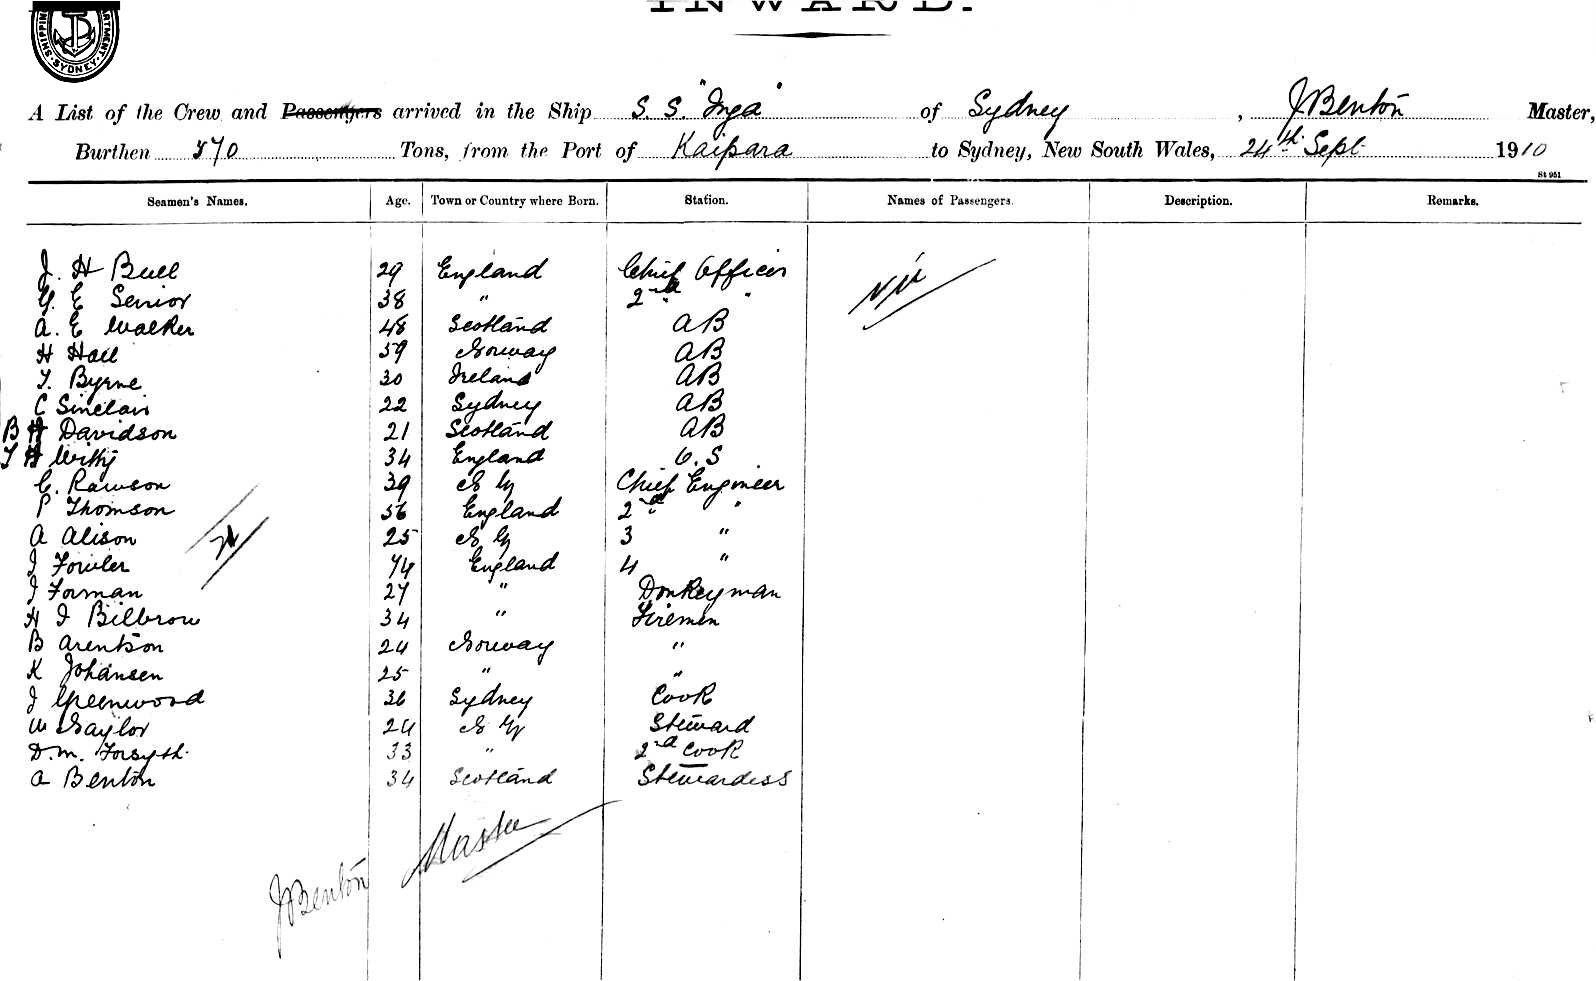 INWARD.
SHIPPING DEPARTMENT SYDNEY
A List of the Crew and Passengers arrived in the Ship S. S. "Inga" of Sydney, J Benton Master,
Burthen 570 Tons, from the Port of Kaipara to Sydney, New South Wales, 24th Sept 1910
St 951
Seamen's Names. Age. Town or Country where Born. Station. Names of Passengers. Description. Remarks.
J. H Bull 29 England Chief Officer Nil
G. E Senior 38 " 2nd "
A. E Walker 48 Scotland AB
H Hall 59 Norway AB
T. Byrne 30 Ireland AB
C Sinclair 22 Sydney AB
B Davidson 21 Scotland AB
T Witty 34 England O.S
C. Rawson 39 N Z Chief Engineer
P Thomson 56 England 2nd "
A Alison 25 N Z 3 "
J Fowler 74 England 4 "
J Forman 27 " Donkeyman
H J Bilbrow 34 " Firemen
B Arentson 24 Norway "
K Johansen 25 " "
J Greenwood 36 Sydney Cook
W Saylor 24 N Z Steward
D. M. Forsyth. 33 " 2nd Cook
A Benton 34 Scotland Stewardess
J Benton Master